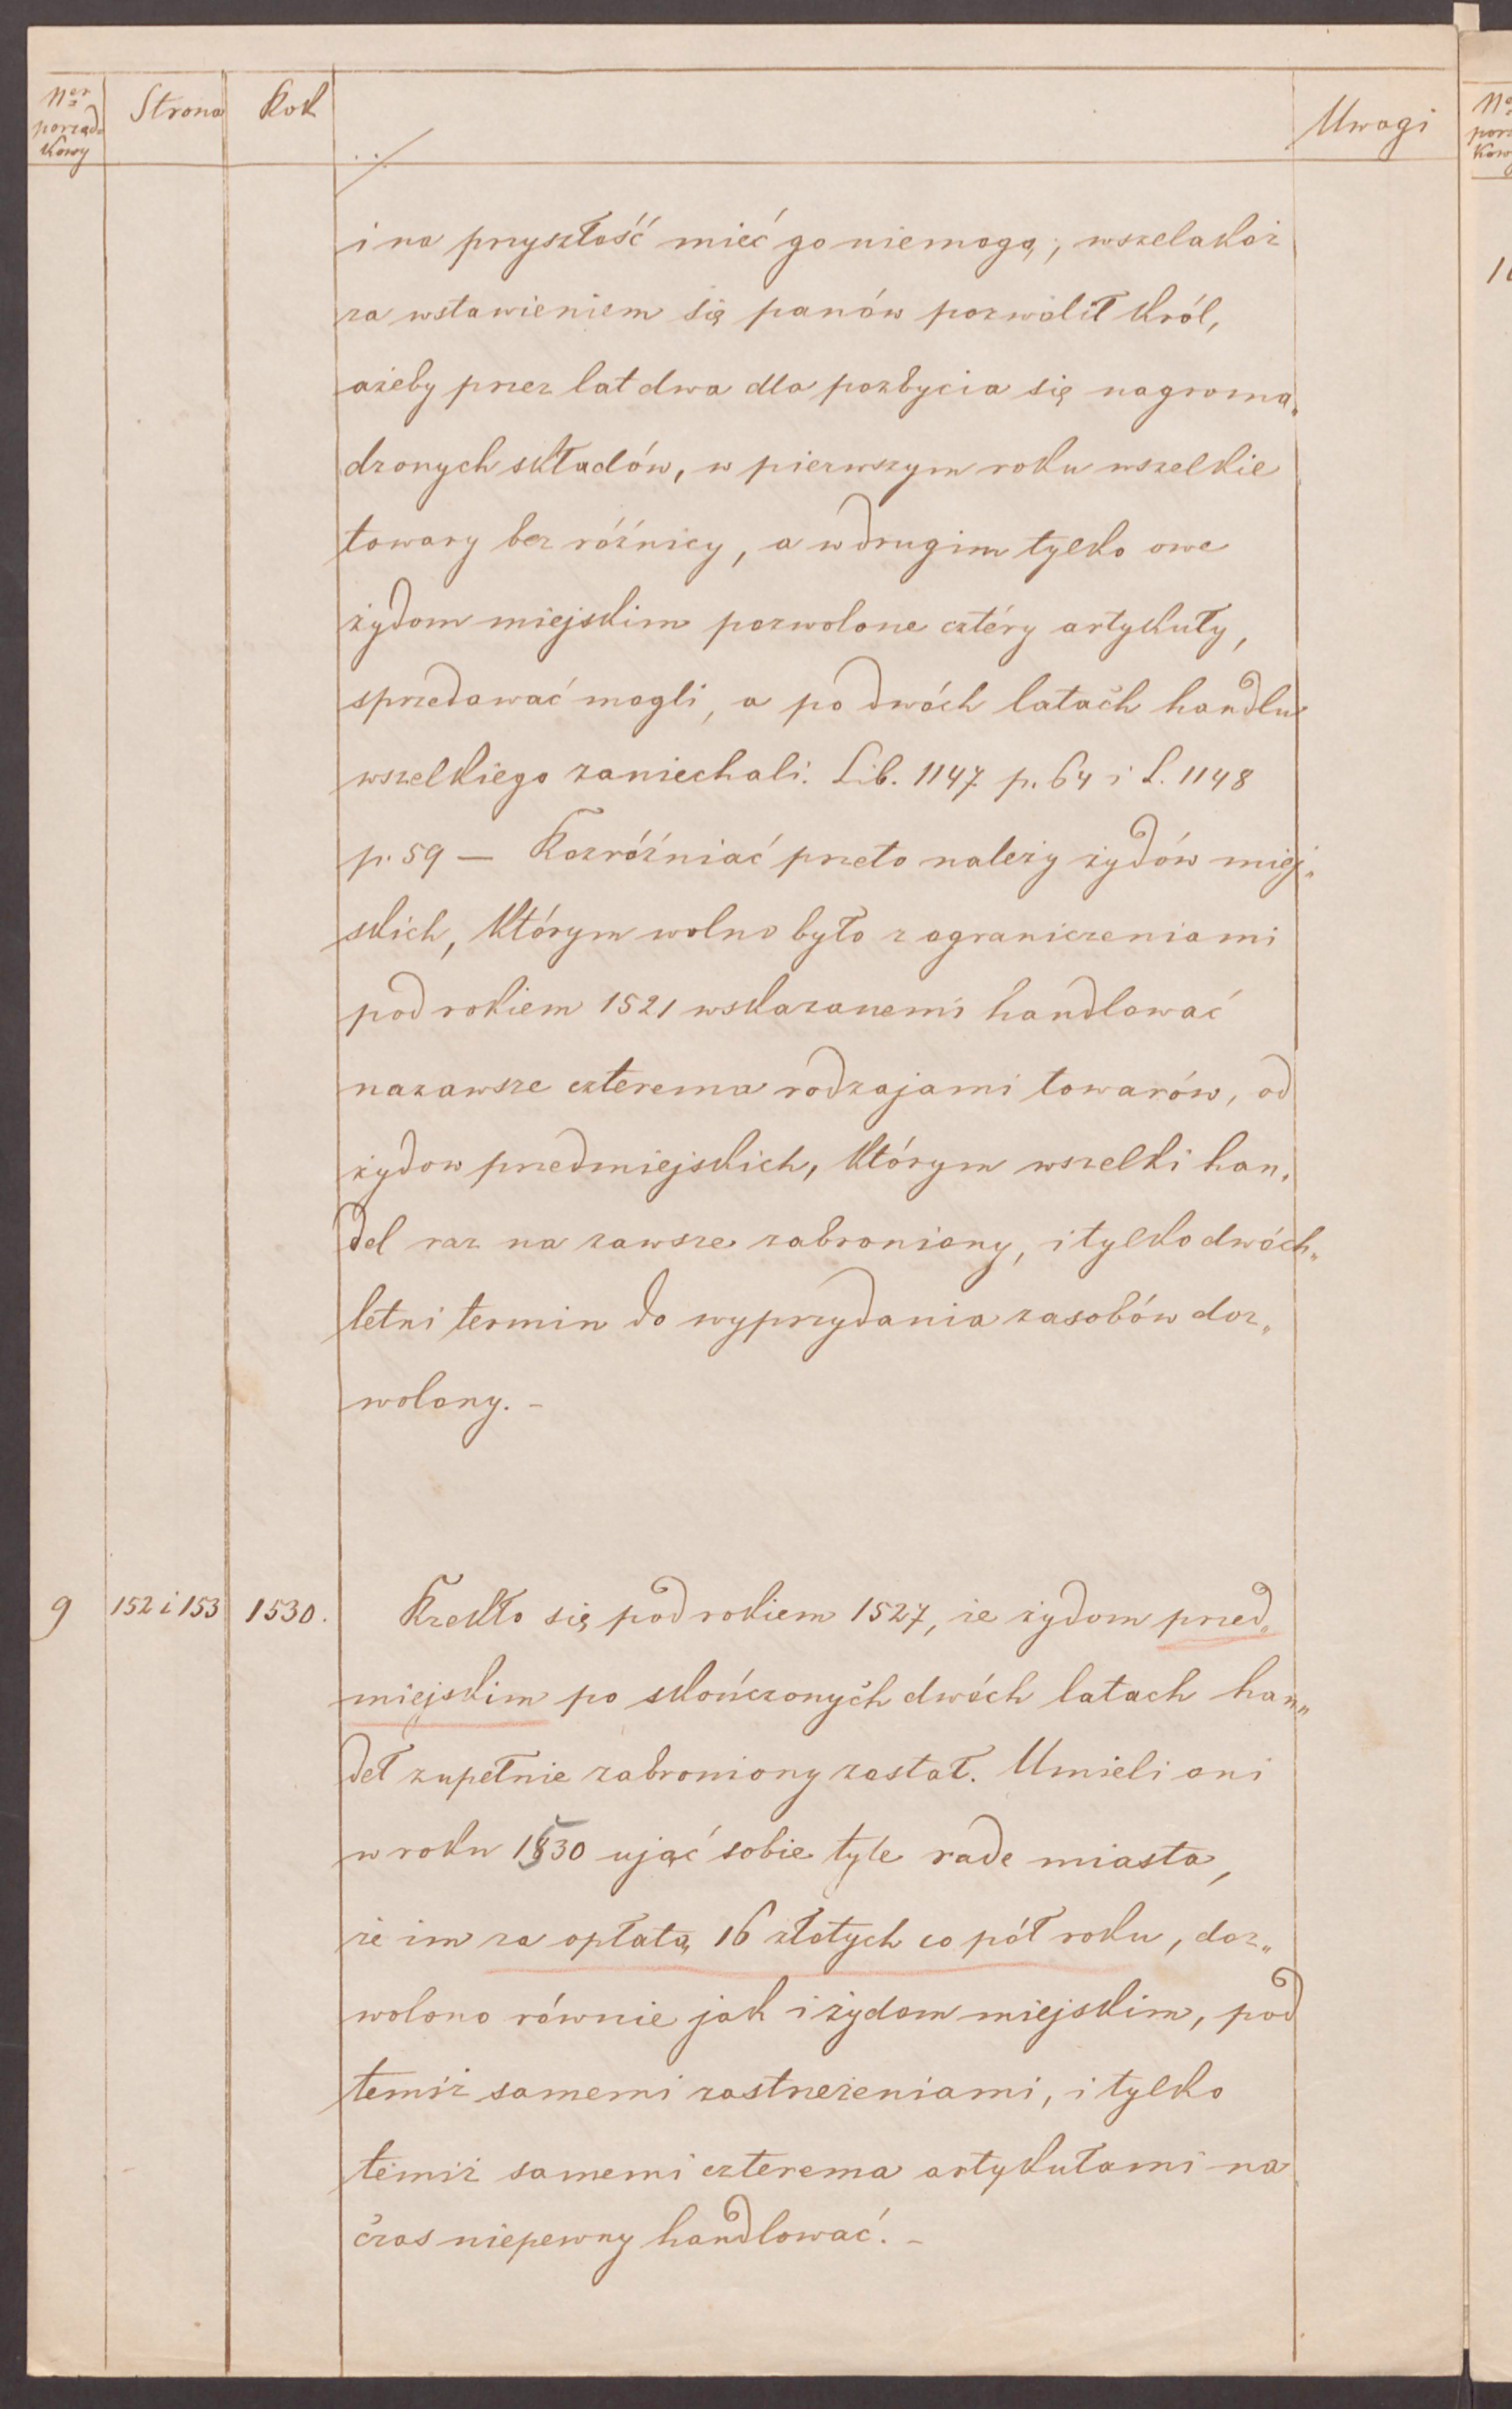 Ner porząd
kowy
Strona
Rok
Uwagi
./.
i na przyszłość mieć go niemogą; wszelakoż
za wstawieniem się panów pozwolił król,
ażeby przez lat dwa dla pozbycia się nagroma„
dzonych składów, w pierwszym roku wszelkie
towary bez różnicy, a w drugim tylko owe
żydom miejskim pozwolone cztéry artykuły,
sprzedawać mogli, a po dwóch latach handlu
wszelkiego zaniechali. Lib. 1147 p. 64 i L. 1148
p. 59 — Rozróżniać przeto należy żydów miej„
skich, którym wolno było z ograniczeniami
pod rokiem 1521 wskazanemi handlować
nazawsze czterema rodzajami towarów, od
żydow przedmiejskich, którym wszelki han„
del raz na zawsze zabroniony, i tylko dwóch„
letni termin do wyprzydania zasobów doz„
wolony. -
9 152 i 153 1530. Rzekło się pod rokiem 1527, że żydom przed„
miejskim po skończonych dwóch latach han„
deł zupełnie zabroniony został. Umieli oni
w roku 1530 ująć sobie tyle radę miasta,
że im za opłatą 16 złotych co pół roku, doz„
wolono równie jak i żydom miejskim, pod
temiż samemi zastrzeżeniami, i tylko
temiż samemi czterema artykułami na
czas niepewny handlować. -
Ner
porz
kow
1